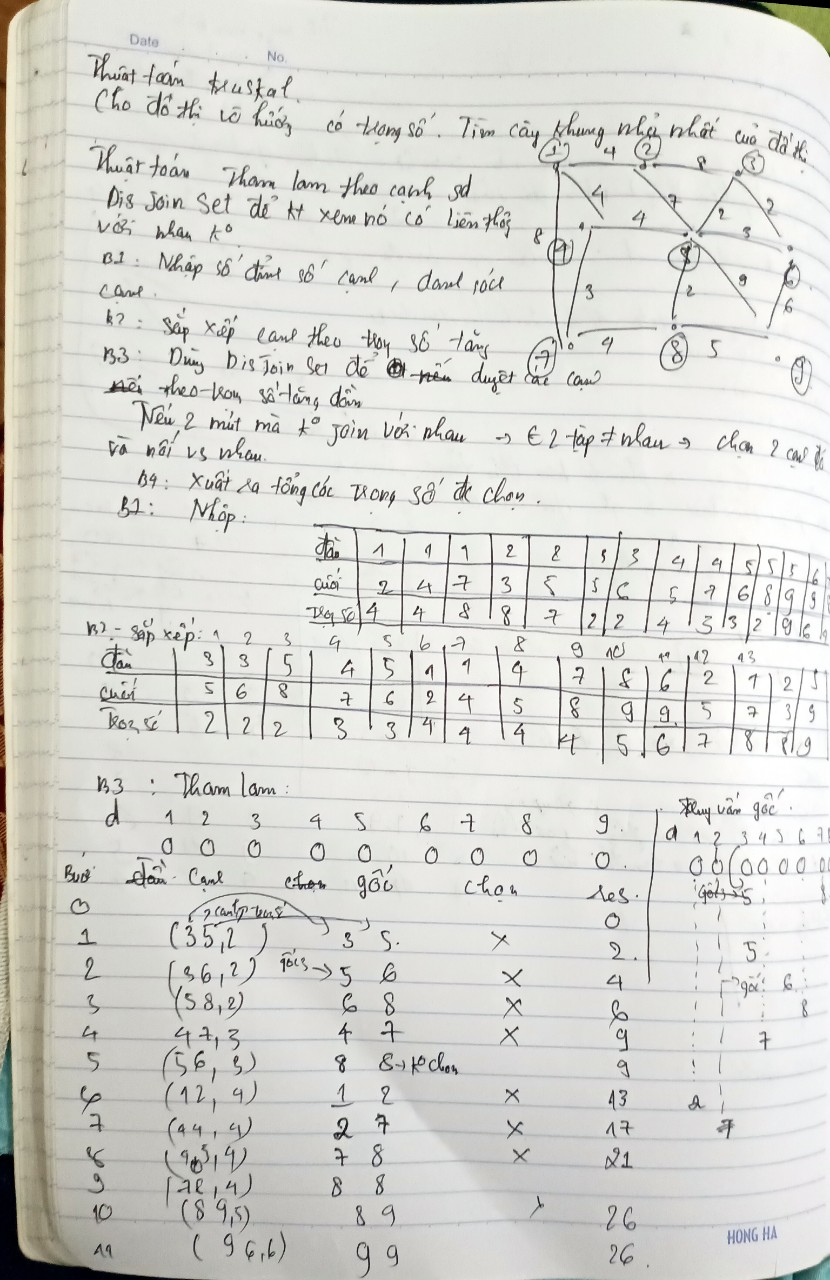 Date No.
Thuật toán kruskal.
Cho đồ thị vô hướng có trọng số. Tìm cây khung nhỏ nhất của đồ thị
Thuật toán Tham lam theo cạnh sd
Dis Join Set để kt xem nó có liên thông
với nhau k°
B1: Nhập số đỉnh số cạnh, danh sách
cạnh.
B2: Sắp xếp cạnh theo trọng số tăng
B3: Dùng Dis Join Set để duyệt các cạnh
theo trọng số tăng dần
Nếu 2 mút mà k° join với nhau → ∈ 2 tập ≠ nhau → chọn 2 cạnh đó
và nối vs nhau.
B4: Xuất ra tổng các trọng số đc chọn.
1 4 2 8 3
4 7 2 2
4 4 3
8 3 2 9 6 6
7 4 8 5 9
B1: Nhập:
đầu 1 1 1 2 2 3 3 4 4 5 5 5 6
cuối 2 4 7 3 5 5 6 5 7 6 8 9 9
trọng số 4 4 8 8 7 2 2 4 3 3 2 9 6
B2: Sắp xếp: 1 2 3 4 5 6 7 8 9 10 11 12 13
đầu 3 3 5 4 5 1 1 4 7 8 6 2 1 2 5
cuối 5 6 8 7 6 2 4 5 8 9 9 5 7 3 9
Trọng số 2 2 2 3 3 4 4 4 4 5 6 7 8 8 9
B3: Tham lam:
d 1 2 3 4 5 6 7 8 9.
0 0 0 0 0 0 0 0 0.
Bước Cạnh gốc chọn res.
0 0
1 (35,2) 3 5. × 2.
2 (36,2) gốc3 → 5 6 × 4
3 (58,2) 6 8 × 6
4 47,3 4 7 × 9
5 (56,3) 8 8 → k° chọn 9
6 (12,4) 1 2 × 13
7 (14,4) 2 7 × 17
8 (45,4) 7 8 × 21
9 (78,4) 8 8
10 (89,5) 8 9 × 26
11 (96,6) 9 9 26.
Truy vấn gốc.
d 1 2 3 4 5 6 7 8
0 0 0 0 0 0 0
5 8
5
gốc 6
8
7
2
7
HONG HA